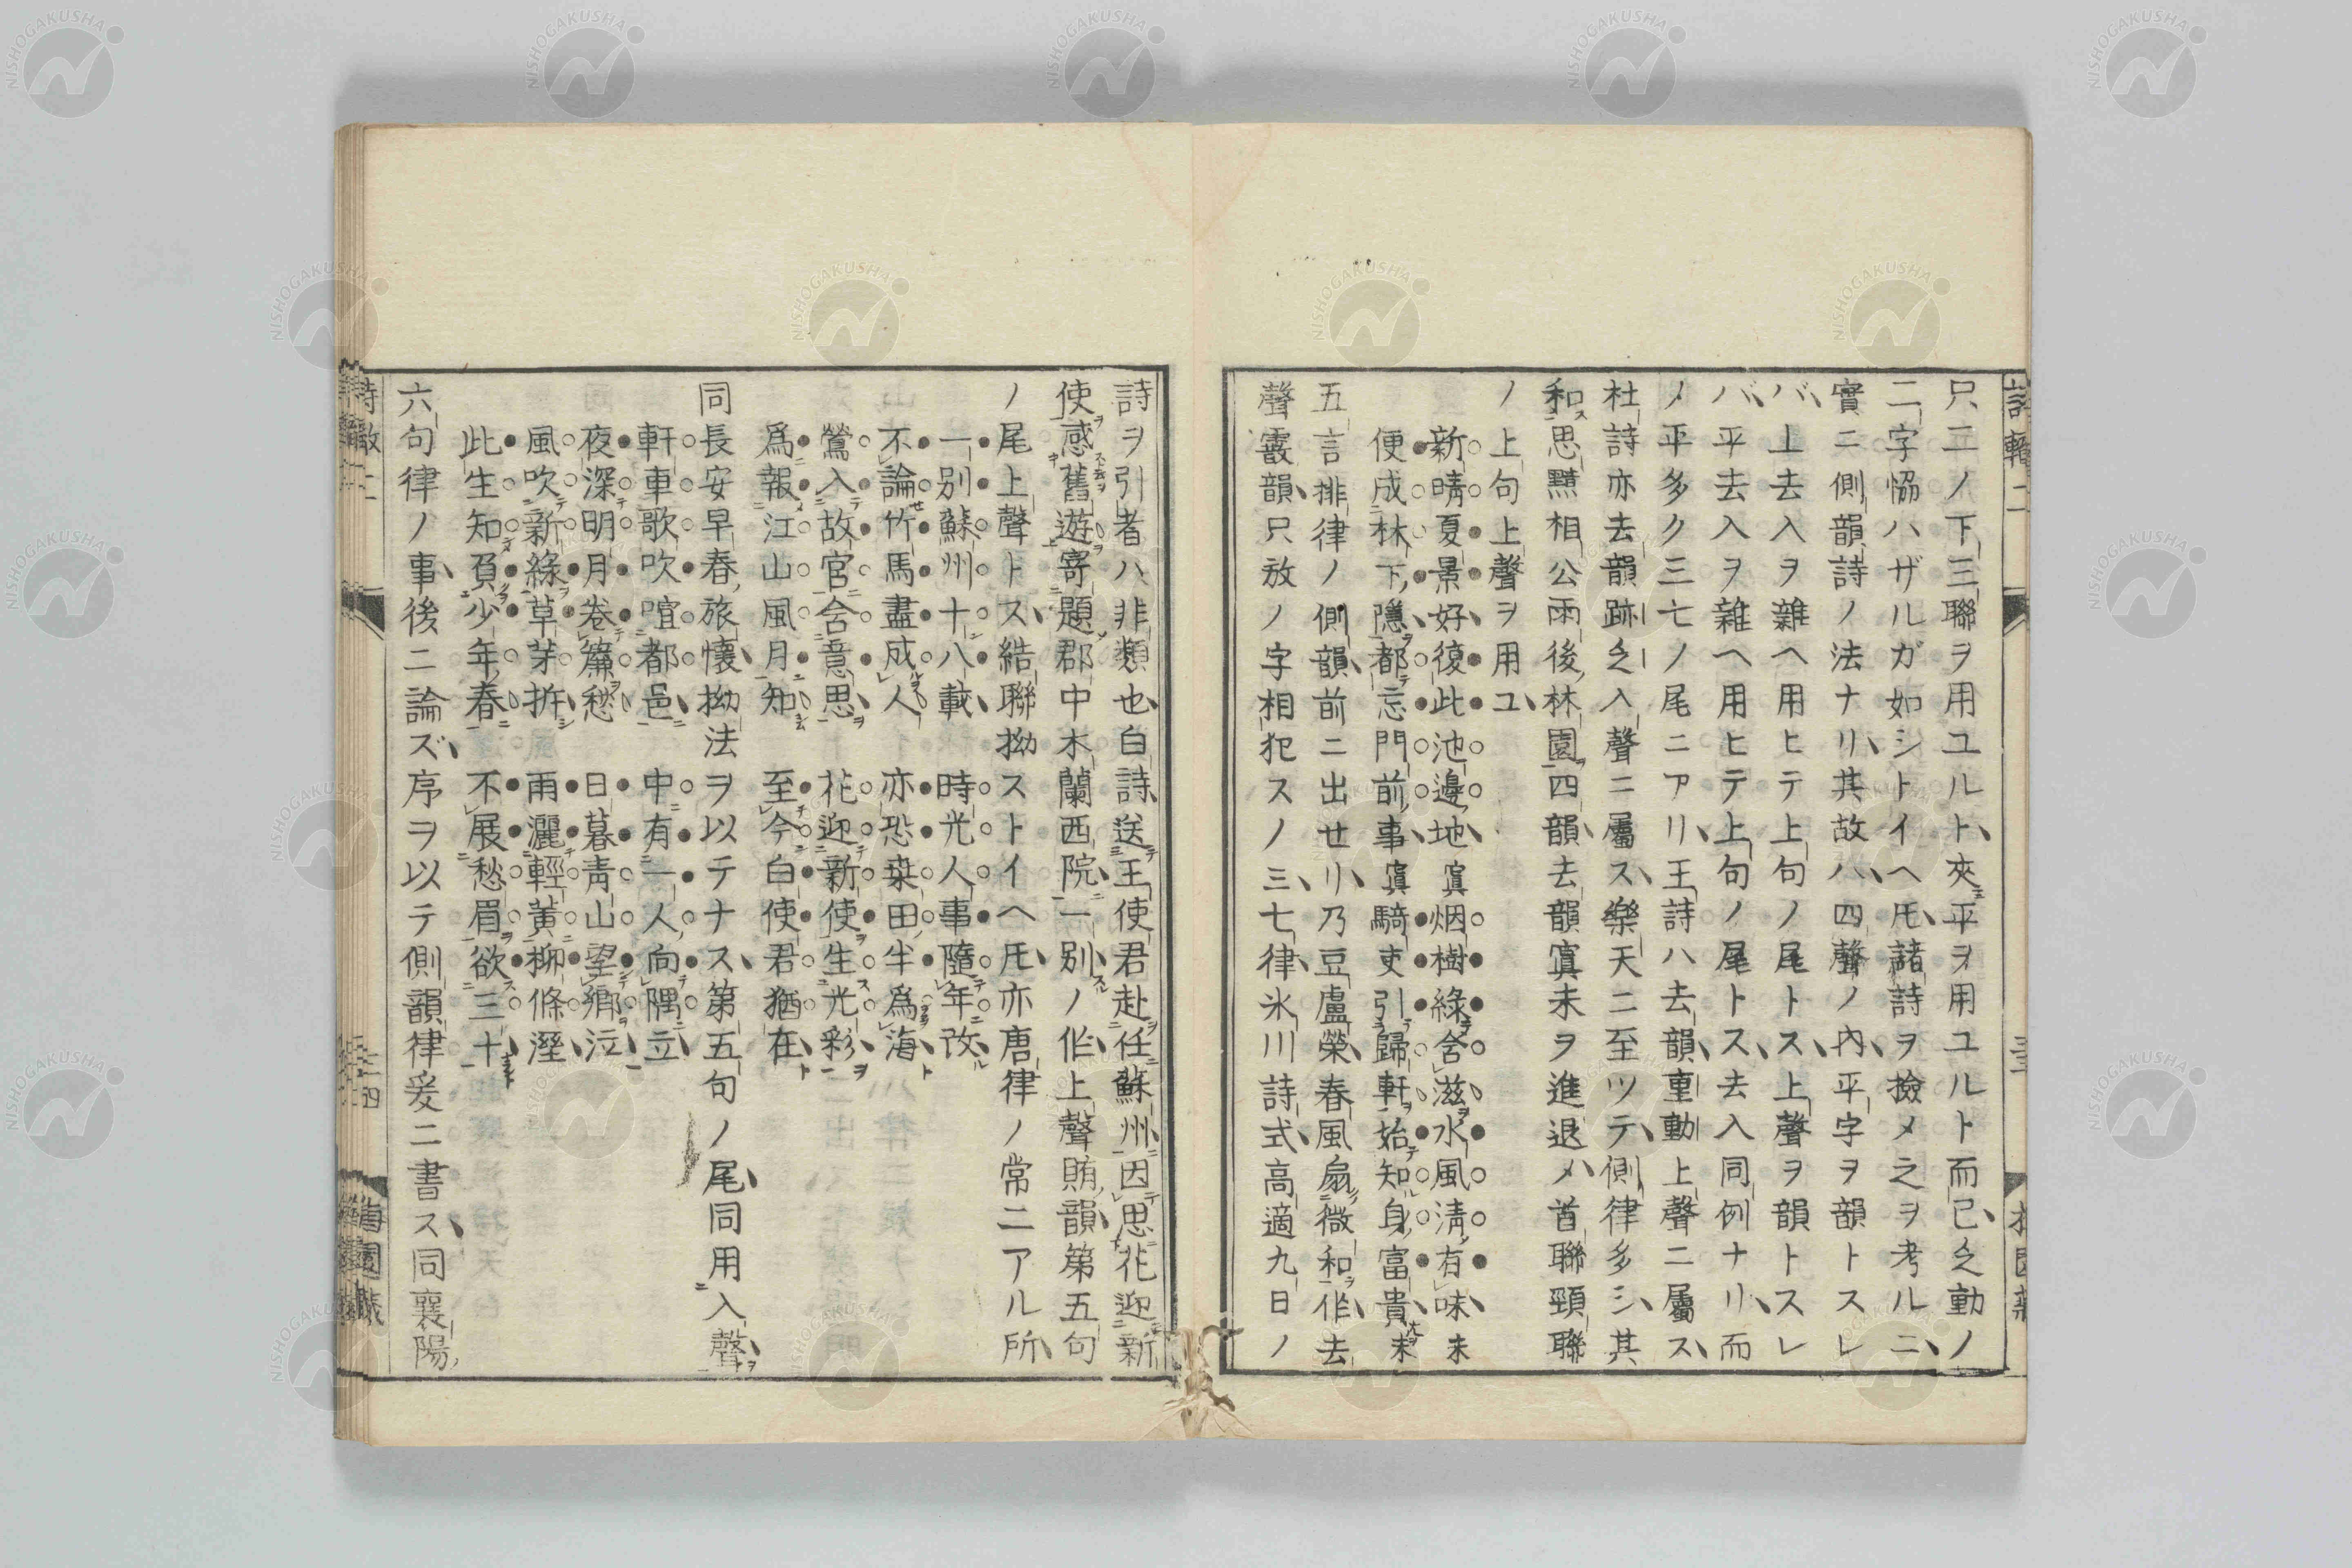 只二ノ下三聯ヲ用ユルト、夾平ヲ用ユルト而已、乏動ノ
二字恊ハザルガ如シトイヘ𪜈、諸詩ヲ撿メ之ヲ考ルニ、
實ニ側韻詩ノ法ナリ、其故ハ、四聲ノ內、平字ヲ韻トスレ
バ、上去入ヲ雜ヘ用ヒテ上句ノ尾トス、上聲ヲ韻トスレ
バ、平去入ヲ雜ヘ用ヒテ上句ノ尾トス、去入同例ナリ、而
ノ平多ク三七ノ尾ニアリ、王詩ハ去韻、重動上聲ニ屬ス、
杜詩亦去韻跡乏入聲ニ屬ス、樂天ニ至ツテ、側律多シ、其
和思黯相公雨後林園四韻、去韻寘未ヲ進退メ、首聯頸聯
ノ上句上聲ヲ用ユ、
新晴夏景好復此池邊地寘烟樹綠含滋水風淸有味未
便成林下隱都忘門前事寘騎吏引歸軒始知身富貴未
五言排律ノ側韻、前ニ出セリ、乃豆盧榮、春風扇微和作、去
聲霰韻、只放ノ字相犯スノ三、七律、氷川詩式、高適九日ノ
詩ヲ引者ハ、非類也、白詩、送王使君赴任蘇州、因思花迎新
使感舊遊寄題郡中木蘭西院一別ノ作、上聲賄韻、第五句
ノ尾上聲トス、結聯拗ストイヘ𪜈、亦唐律ノ常ニアル所、
一別蘇州十八載時光人事隨年改
不論竹馬盡成人亦恐桒田半爲海
鶯入故宮含意思花迎新使生光彩
爲報江山風月知至今白使君猶在
同長安早春旅懷、拗法ヲ以テナス、第五句ノ尾、同用入聲
軒車歌吹喧都邑中有一人向隅立
夜深明月卷簾愁日暮靑山望鄕泣
風吹新綠草芽拆雨灑輕黃柳條溼
此生知負少年春不展愁眉欲三十
六句律ノ事、後ニ論ズ、序ヲ以テ側韻律爰ニ書ス、同襄陽